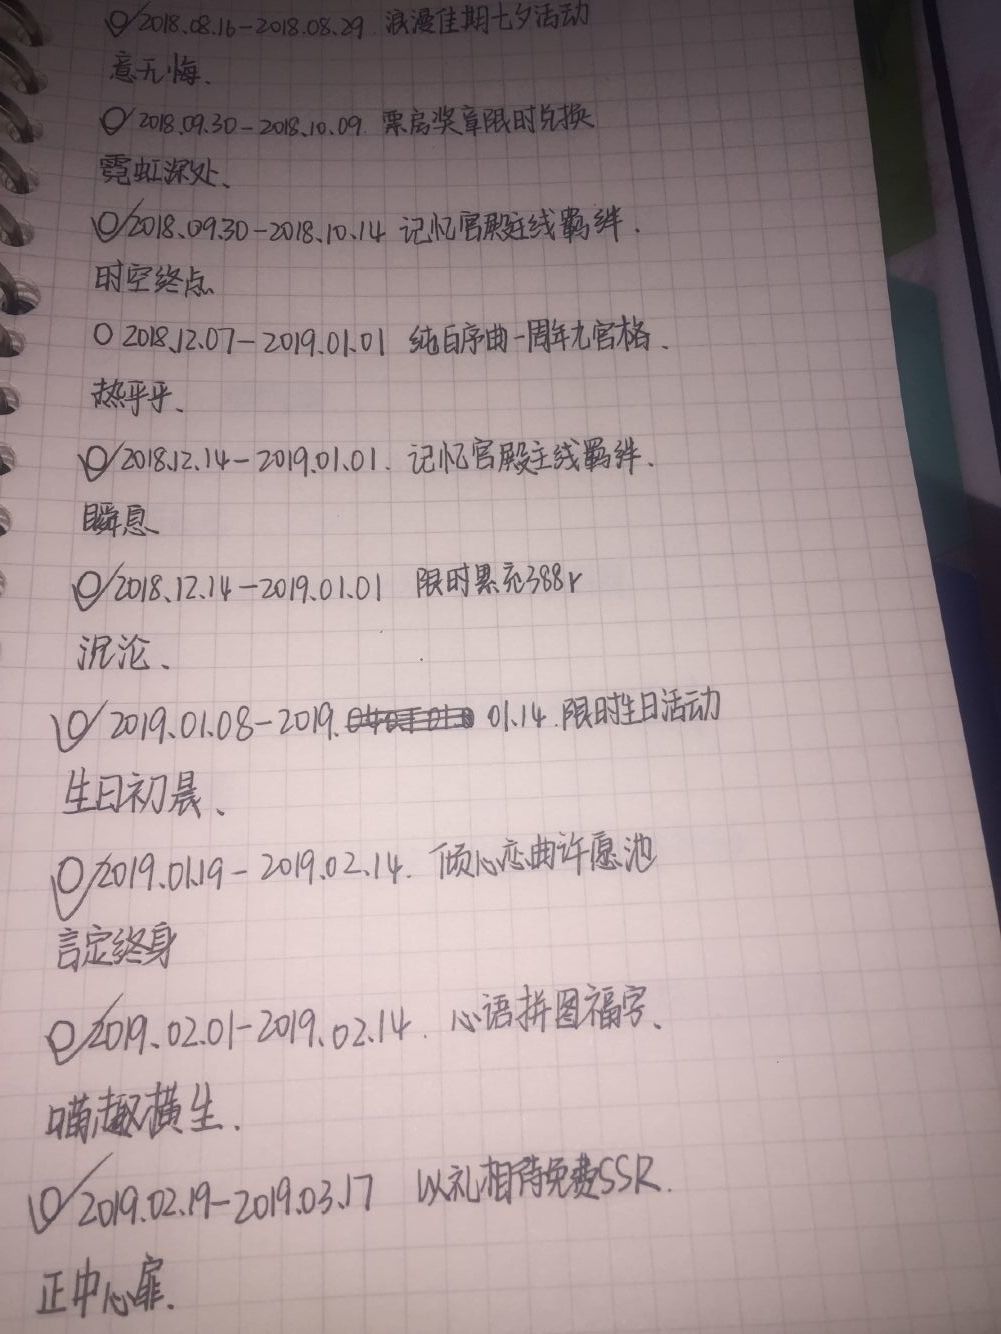 2018.08.16-2018.08.29 浪漫佳期七夕活动
意无悔、
2018.09.30-2018.10.09 票房奖章限时兑换
霓虹深处、
2018.09.30-2018.10.14 记忆宫殿主线羁绊.
时空终点
2018.12.07-2019.01.01 纯白序曲一周年九宫格、
热乎乎、
2018.12.14-2019.01.01. 记忆宫殿主线羁绊.
瞬息
2018.12.14-2019.01.01 限时累充388r
沉沦、
2019.01.08-2019. 01.14.限时生日活动
生日初晨、
2019.01.19-2019.02.14. 倾心恋曲许愿池
言定终身
2019.02.01-2019.02.14. 心语拼图福字、
喵趣横生.
2019.02.19-2019.03.17 以礼相待免费SSR.
正中心扉.